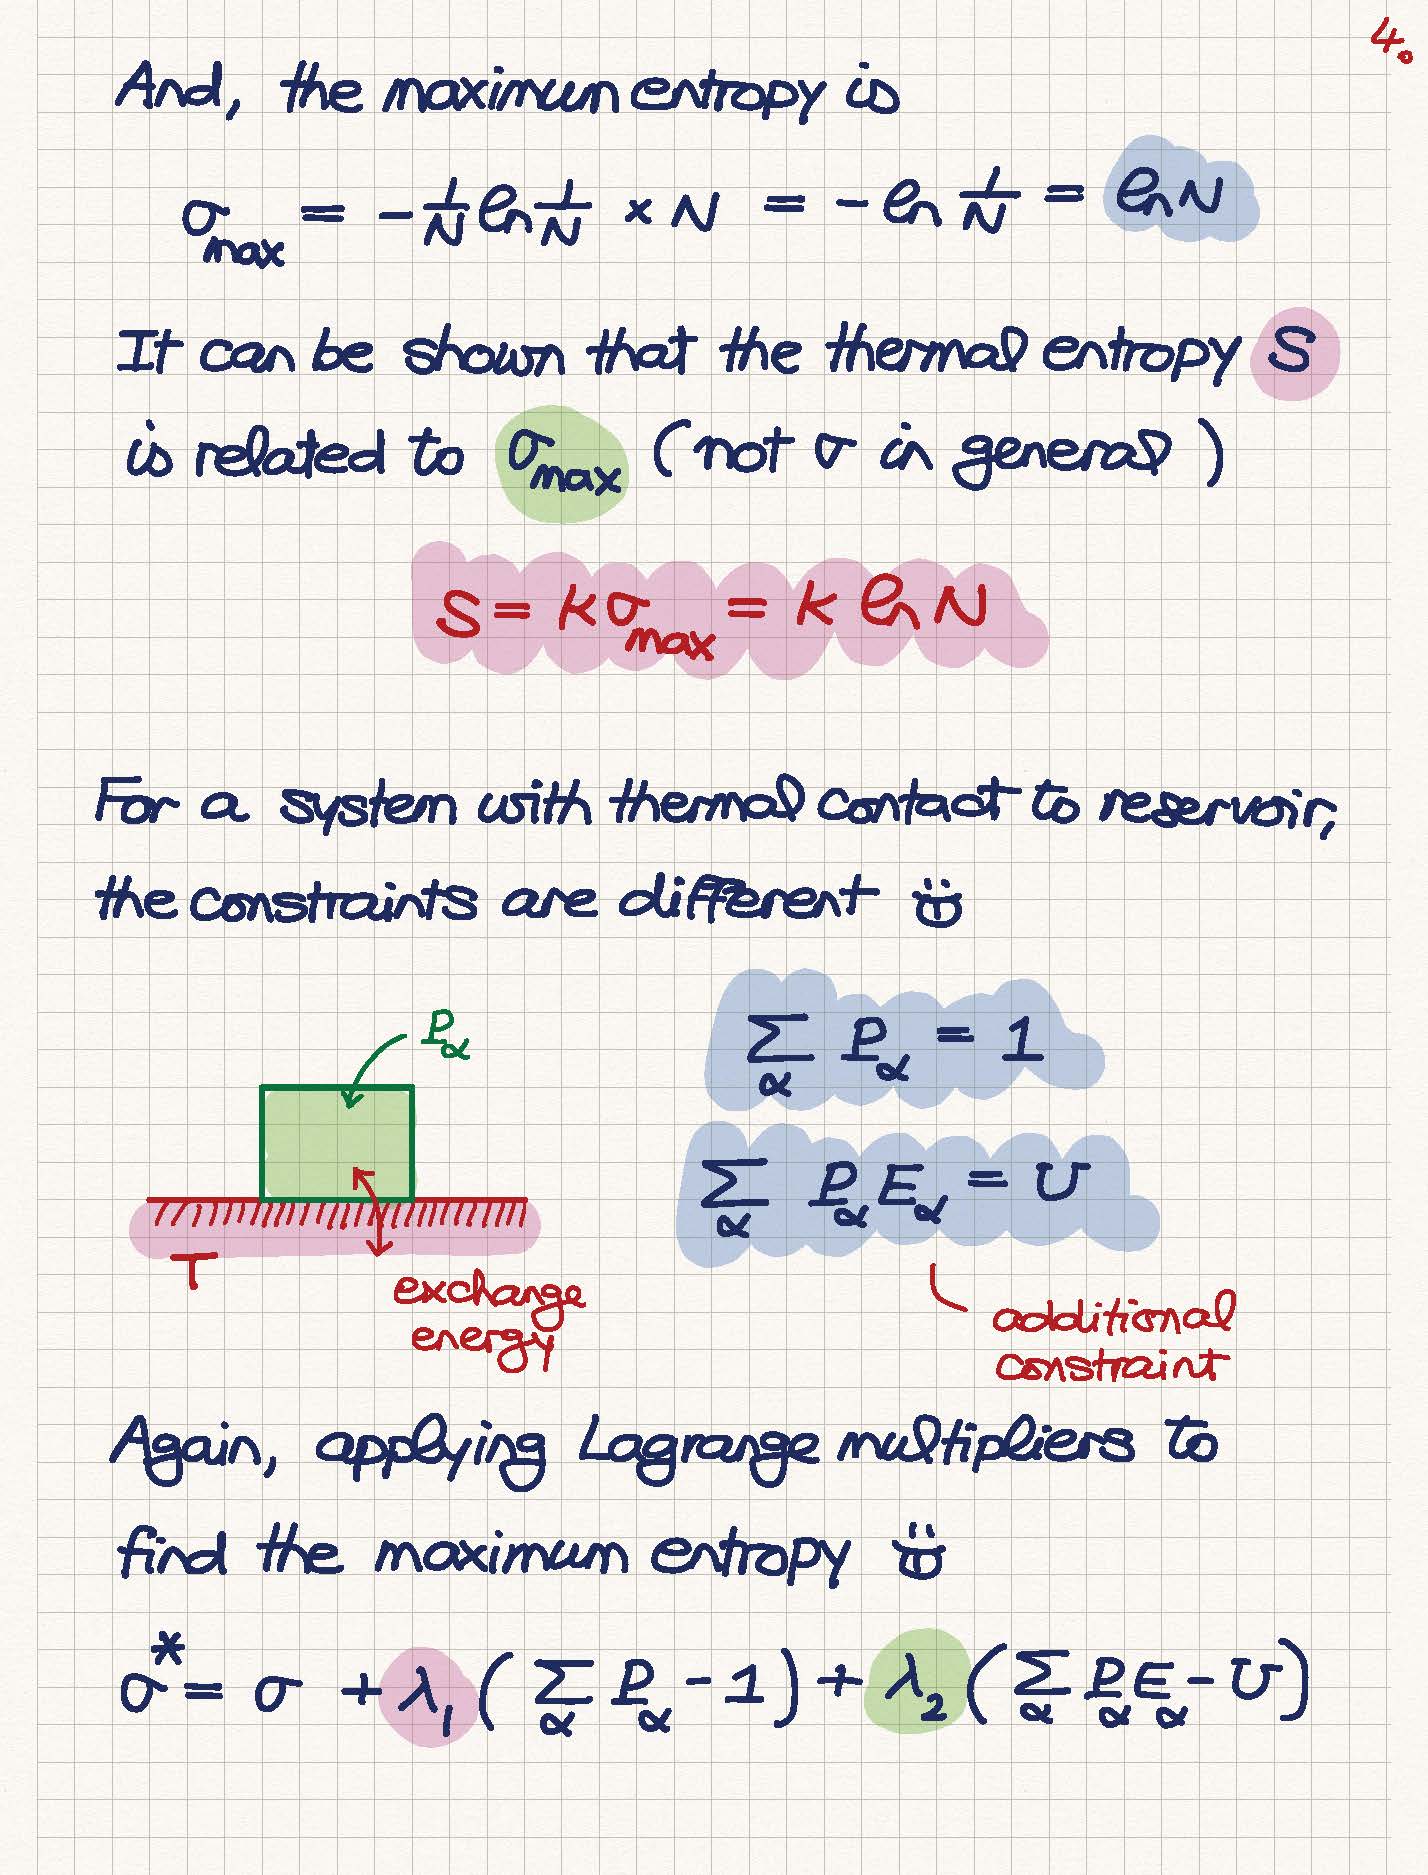 4.
And, the maximum entropy is
σ_max = - 1/N ln 1/N × N = - ln 1/N = ln N
It can be shown that the thermal entropy S
is related to σ_max (not σ in general)
S = k σ_max = k ln N
For a system with thermal contact to reservoir,
the constraints are different
P_α
Σ_α P_α = 1
Σ_α P_α E_α = U
T
exchange
energy
additional
constraint
Again, applying Lagrange multipliers to
find the maximum entropy
σ* = σ + λ₁ ( Σ_α P_α - 1 ) + λ₂ ( Σ_α P_α E_α - U )